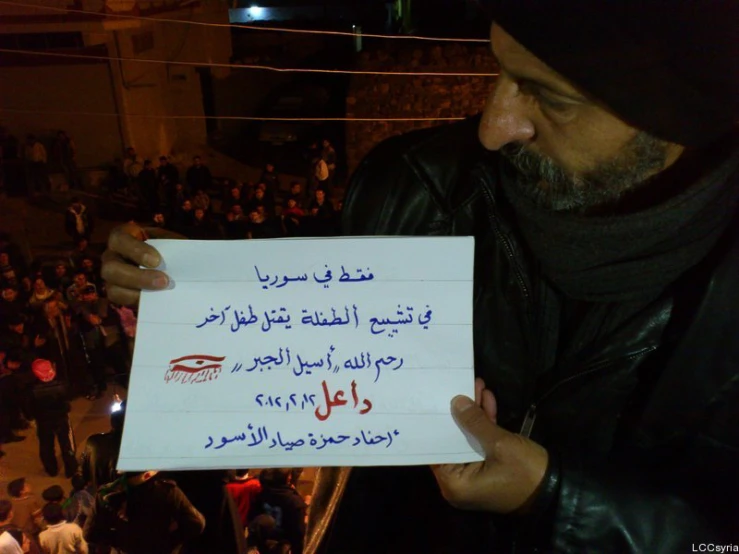 فقط في سوريا
في تشييع الطفلة يقتل طفل آخر
رحم الله "أسيل الجبر"
داعل ٢٠١٢,٢,١٢
أحفاد حمزة صياد الأسود
LCCsyria